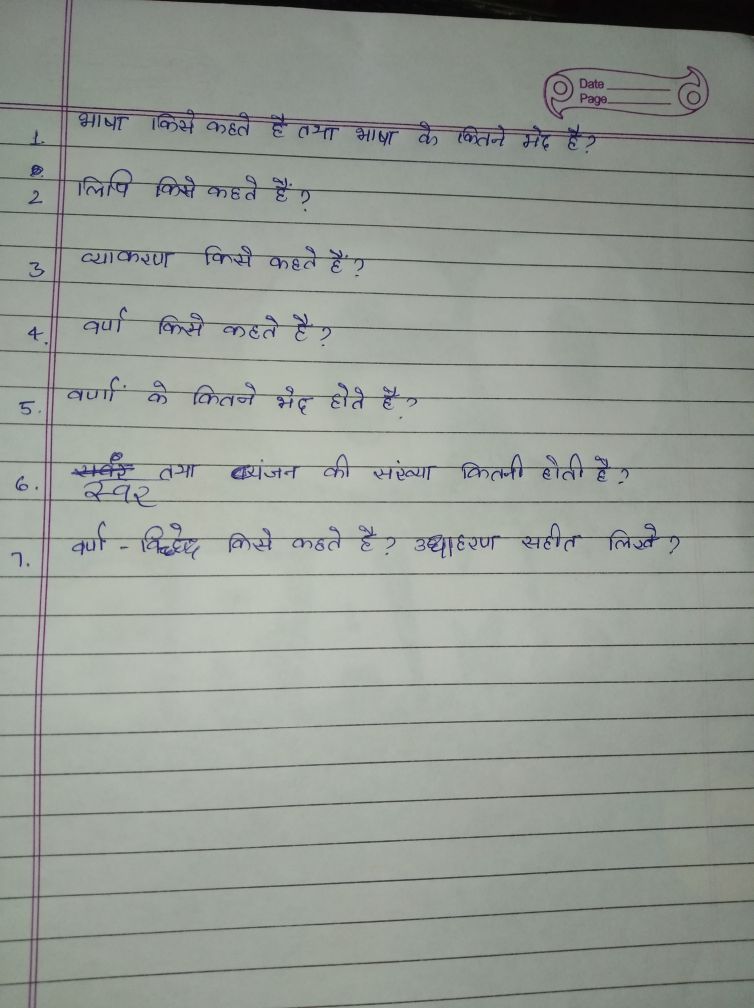 Date
Page
1. भाषा किसे कहते है तथा भाषा के कितने भेद है?
2 लिपि किसे कहते हैं?
3 व्याकरण किसे कहते हैं?
4. वर्ण किसे कहते है?
5. वर्णों के कितने भेद होते है?
6. स्वर तथा व्यंजन की संख्या कितनी होती है?
7. वर्ण - विच्छेद किसे कहते है? उद्याहरण सहीत लिखे?